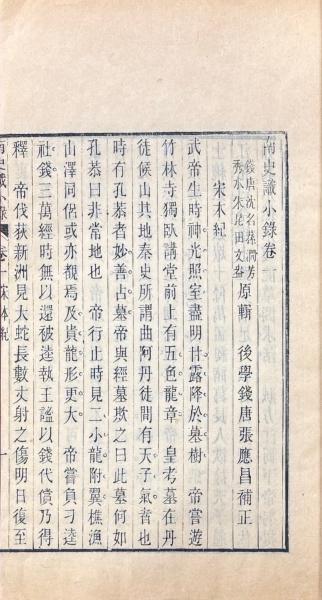 南史識小錄卷一
錢唐沈名蓀澗芳
秀水朱昆田文盎
原輯　後學錢唐張應昌補正
宋本紀
武帝生時神光照室盡明甘露降於墓樹　帝嘗遊
竹林寺獨臥講堂前上有五色龍章　皇考墓在丹
徒候山其地秦史所謂曲阿丹徒間有天子氣者也
時有孔恭者妙善占墓帝與經墓欺之曰此墓何如
孔恭曰非常地也　帝行止時見二小龍附翼樵漁
山澤同侶或亦覩焉及貴龍形更大　帝嘗負刁逵
社錢三萬經時無以還被逵執王謐以錢代償乃得
釋　帝伐荻新洲見大蛇長數丈射之傷明日復至
南史識小錄　卷一　宋本紀　一